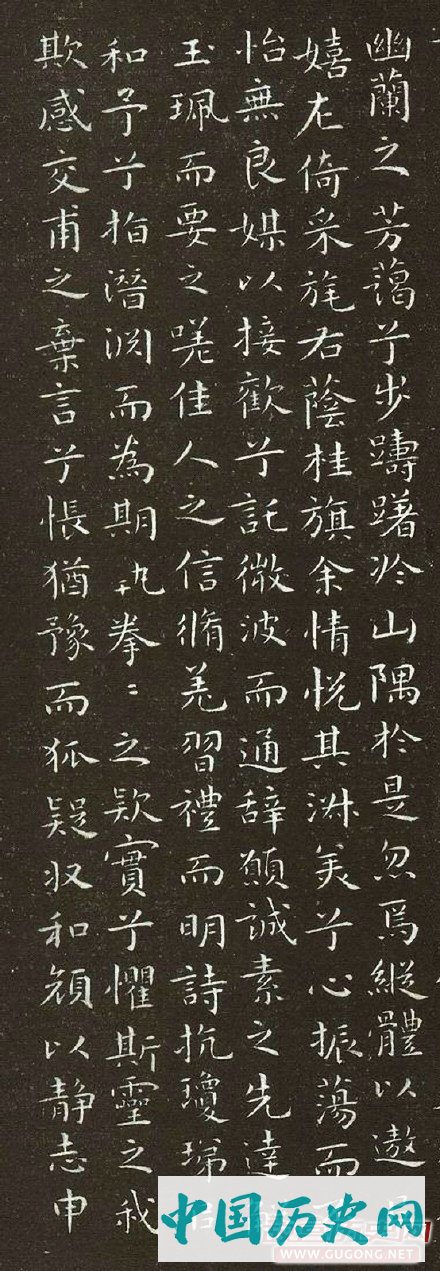 幽蘭之芳藹兮步躊躇於山隅於是忽焉縱體以遨
嬉左倚采旄右蔭桂旗余情悅其淋美兮心振蕩而
怡無良媒以接歡兮託微波而通辭願誠素之先達
玉珮而要之嗟佳人之信脩羌習禮而明詩抗瓊珶
和予兮指潛渕而為期執拳〻之款實兮懼斯靈之我
欺感交甫之棄言兮悵猶豫而狐疑收和顏以静志申
中国历史网
WWW.GUGONG.NET